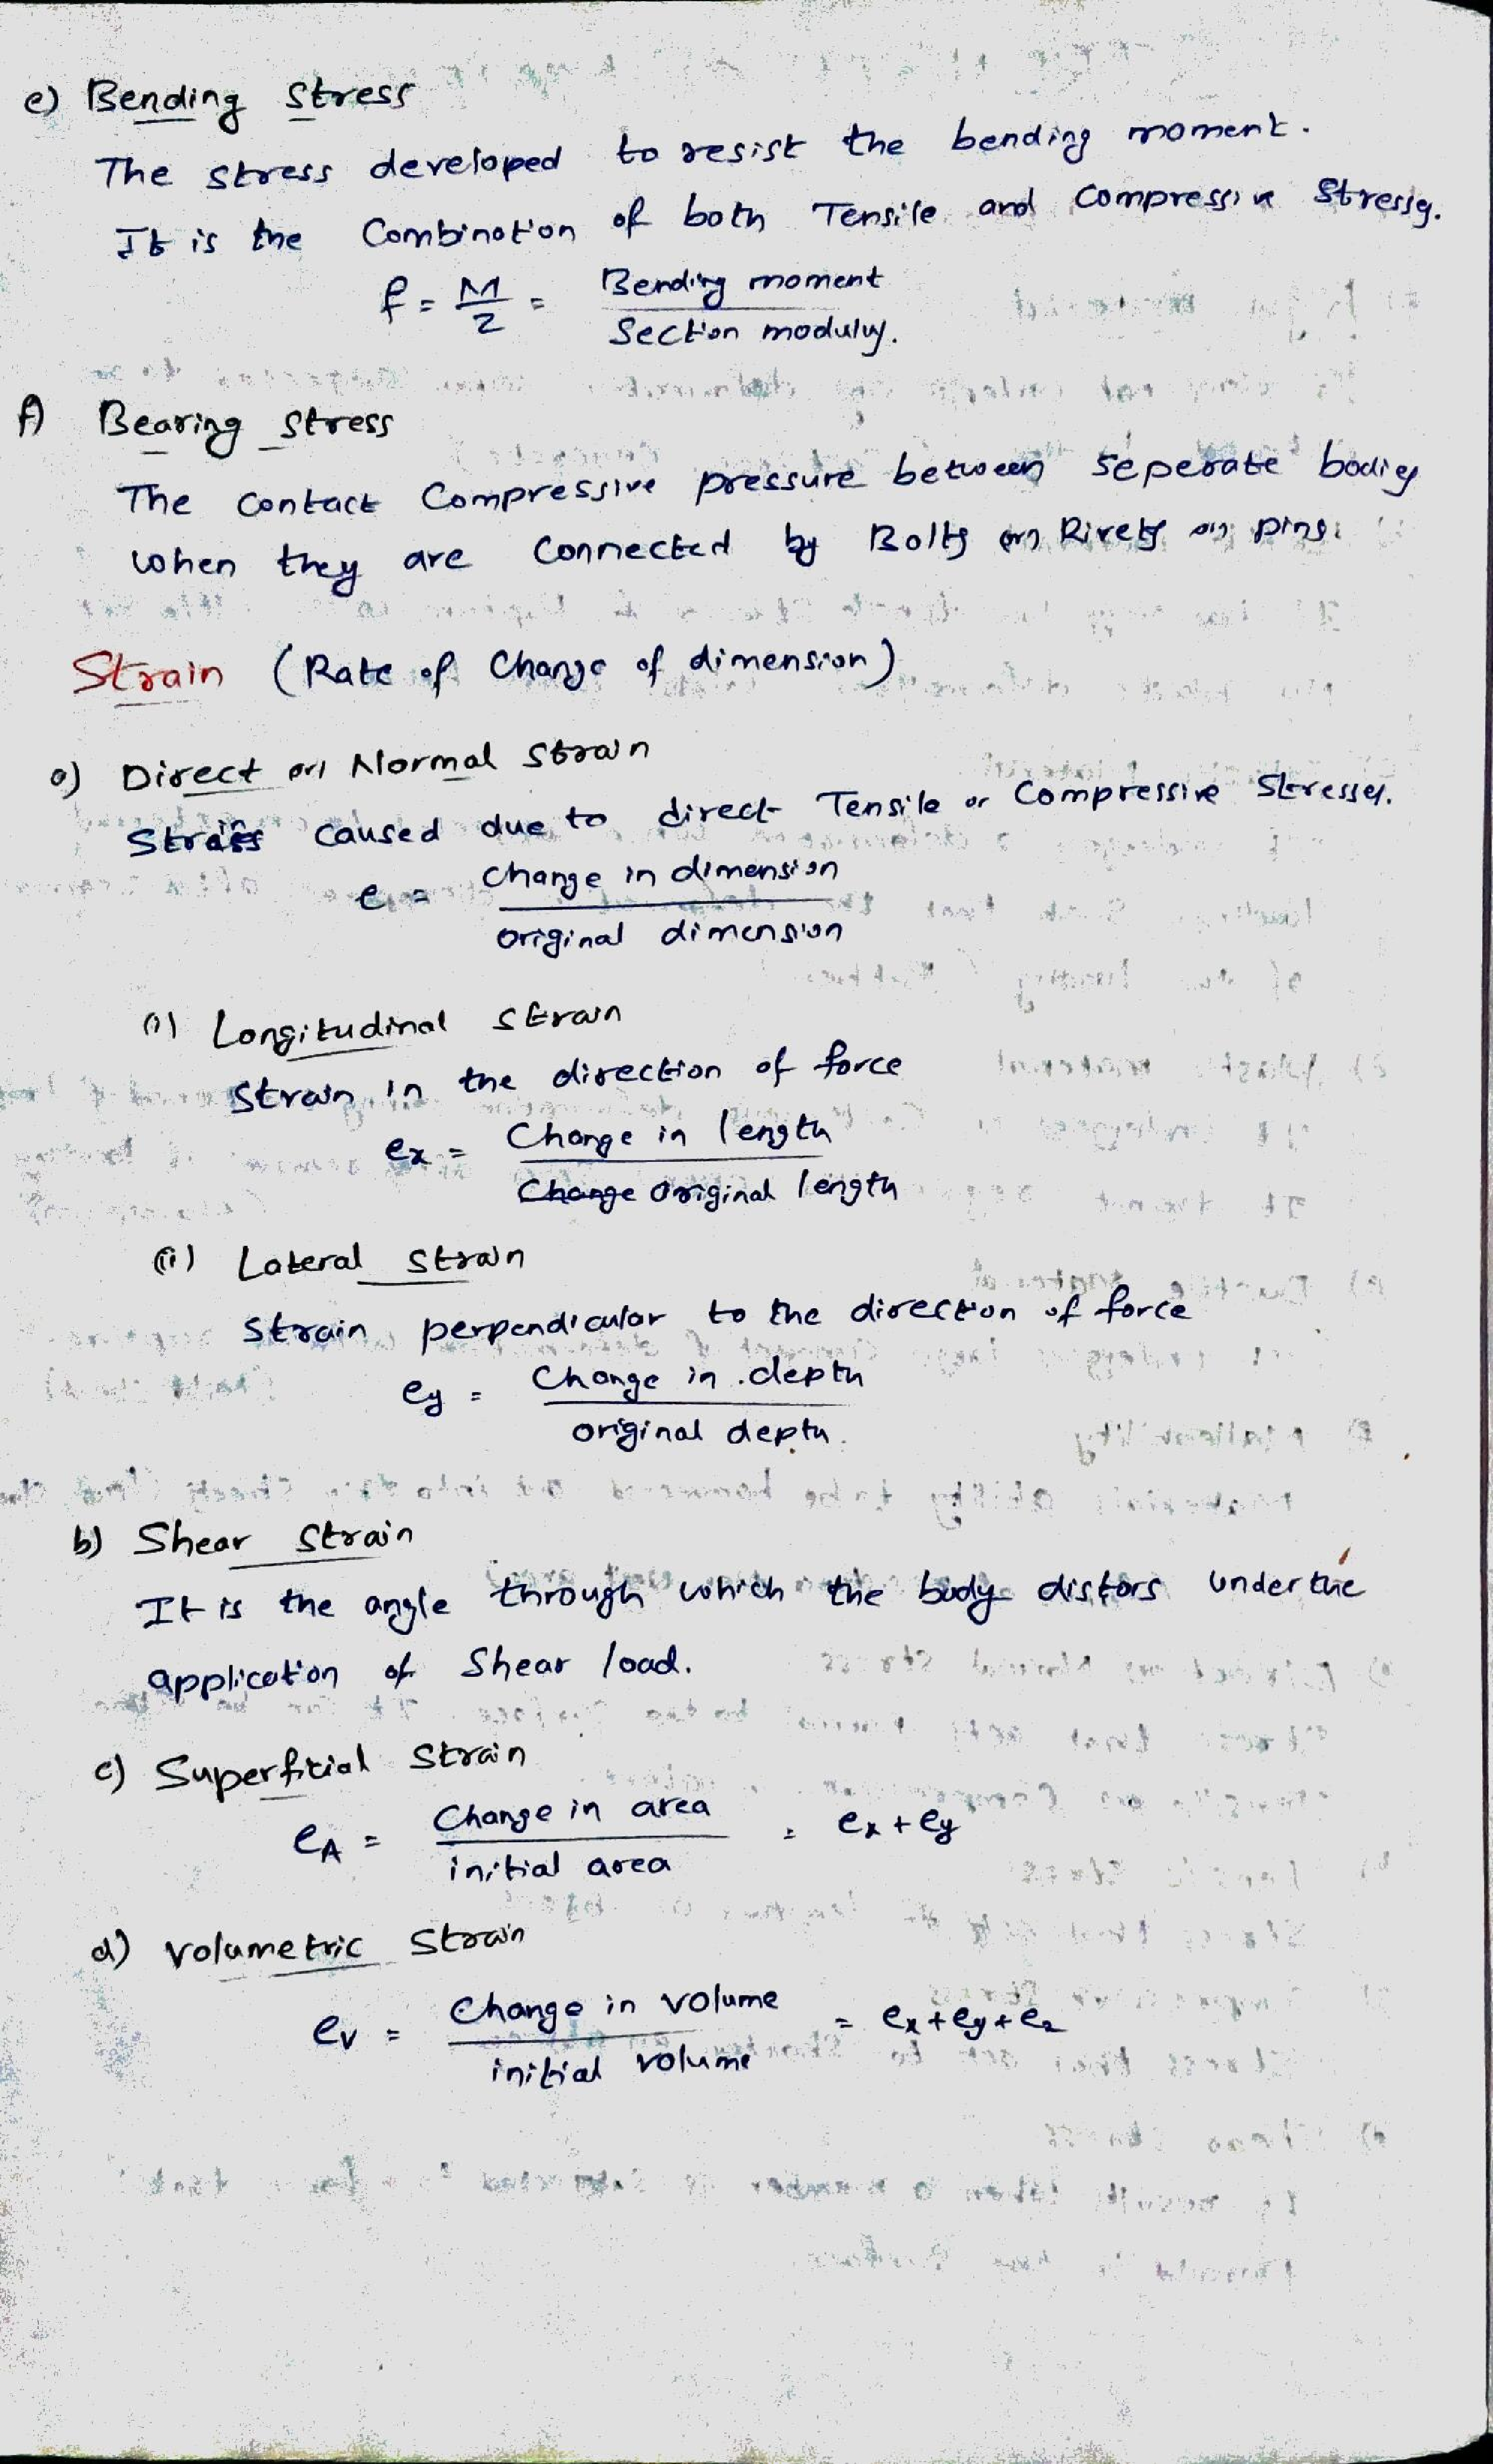 e) Bending Stress
The stress developed to resist the bending moment.
It is the Combination of both Tensile and Compressive Stresses.
f = M/Z = Bending moment / Section modulus.
f) Bearing stress
The contact Compressive pressure between seperate bodies
when they are Connected by Bolts (or) Rivets or pins.
Strain (Rate of Change of dimension)
a) Direct or Normal Strain
Strains caused due to direct Tensile or Compressive Stresses.
e = change in dimension / original dimension
(i) Longitudinal strain
Strain in the direction of force
ex = Change in length / Original length
(ii) Lateral strain
Strain perpendicular to the direction of force
ey = Change in depth / original depth.
b) Shear Strain
It is the angle through which the body distors under the
application of Shear load.
c) Superficial Strain
eA = Change in area / initial area = ex + ey
d) Volumetric Strain
ev = Change in volume / initial volume = ex + ey + ez